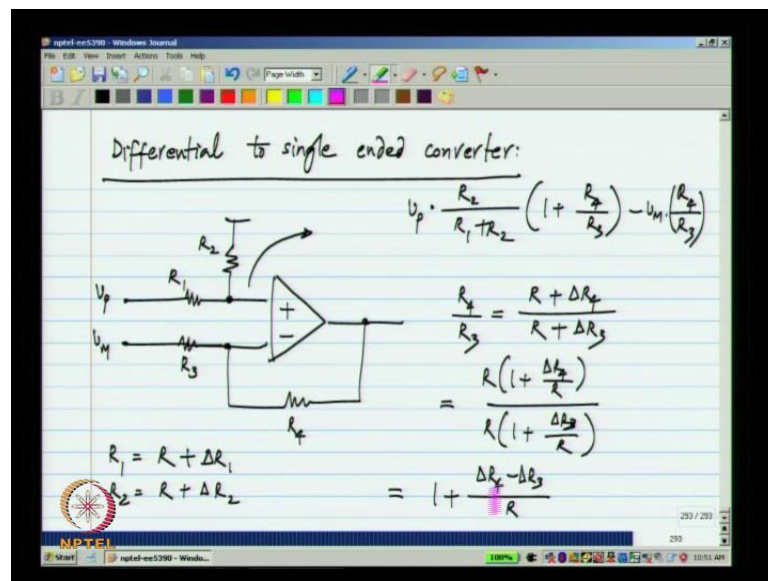 nptel-ee5390 - Windows Journal
File Edit View Insert Actions Tools Help
Page Width
B I
Differential to single ended converter:
υp · R2 / (R1 + R2) (1 + R4/R3) − υM · (R4/R3)
R2
R1
υp
+
υM
−
R3
R4
R4/R3 = (R + ΔR4) / (R + ΔR3)
= R(1 + ΔR4/R) / R(1 + ΔR3/R)
R1 = R + ΔR1
R2 = R + ΔR2
= 1 + (ΔR4 − ΔR3) / R
293 / 293
293
NPTEL
Start
nptel-ee5390 - Windo...
100%
10:51 AM